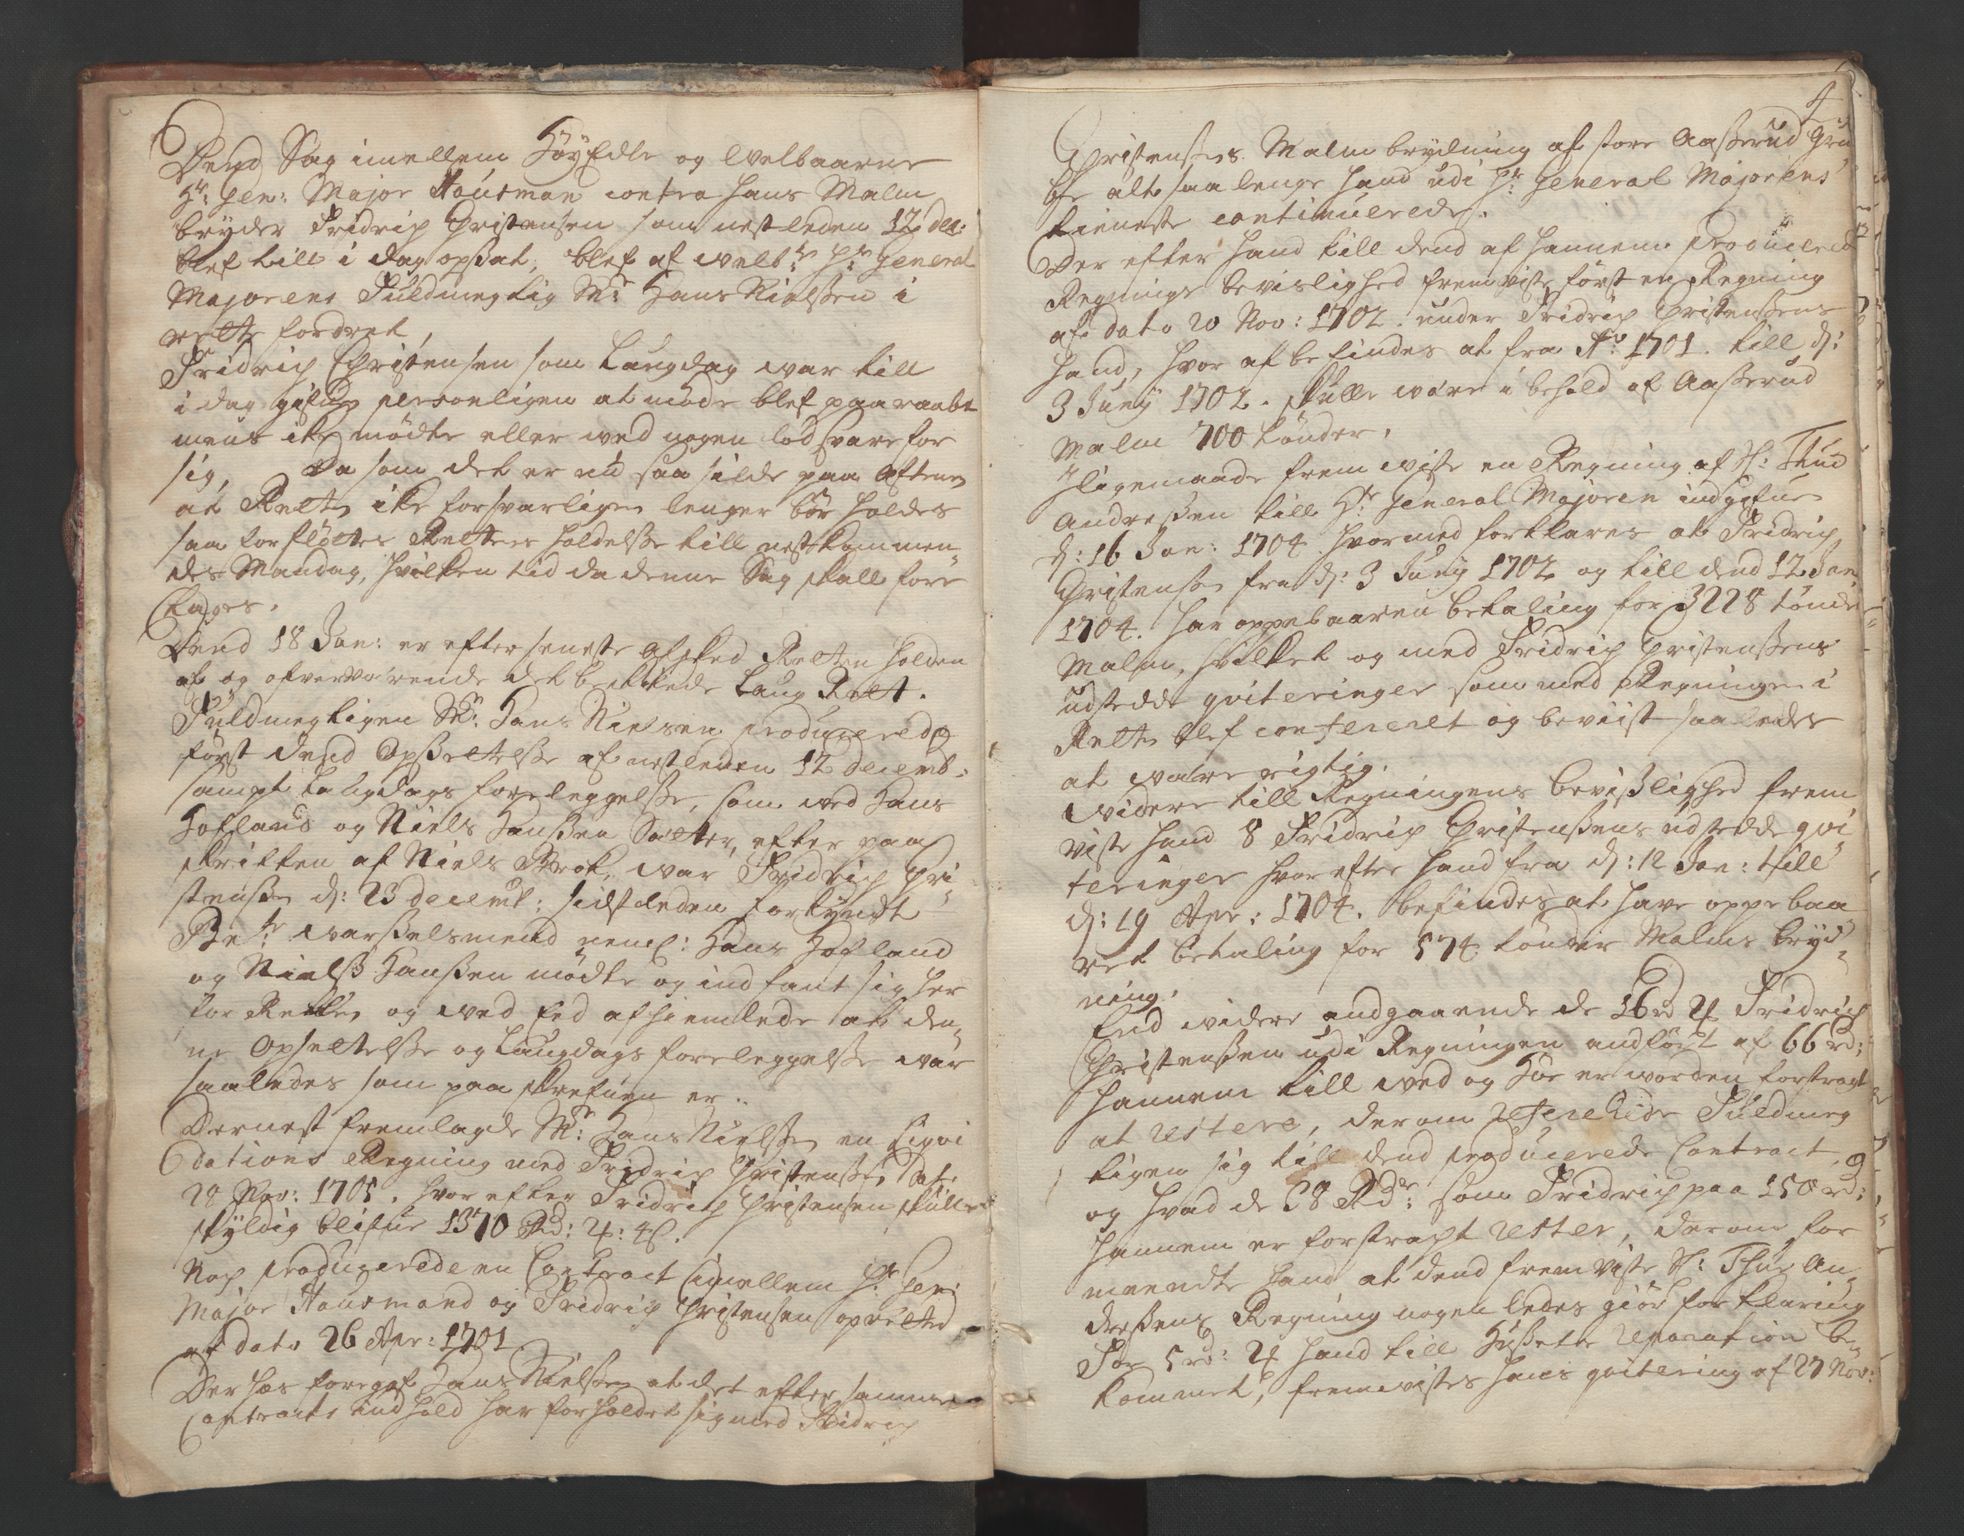 Dend Sag imellem HøyEdle og Welbaarne
Hr: Gen: Major Housmand contra hans Malm
bryder Fridrich Christensen som nestleden 12 dec:
blef till i dag opsat, blef af welb:ne Hr: General
Majorens Fuldmegtig Mr: Hans Nielssen i
rette fordret,
Fridrich Christensen som Laugdag war till
i dag gifuen personligen at møde blef paaraabt
mens iche mødte eller wed nogen lod svare for
sig, Da som det er nu saa silde paa Aftenen
at Retten iche forsvarligen lenger bør holdes
saa forfløttes Rettens holdelsse till nestkommen-
des Mandag, hvilken tid da denne Sag skall fore
tages.
Dend 18 Jan: er efter seneste Afsked Retten holden
af og ofverværende det beskichede Laug Rett.
Fuldmegtigen Mr: Hans Nielsen producerede
først dend Opssettelsse af nestleden 12 decemb:
sampt laugdags foreleggelsse, som wed Hans
Hofland og Niels Hanssen Sæter, efter paa
skriften af Niels Brok, war Fridrich Chri-
stenssen d: 23 decemb: sidstleden forkyndt
Be:te warsselsmend neml: Hans Hofland
og Nielss Hanssen mødte og indfant sig her
for Retten og wed Eed afhiemlede at den-
ne Opsettelsse og Laugdags foreleggelsse war
saaledes som paaskrefuen er..
Dernest fremlagde Mr: Hans Nielssen en Liqvi
dations Regning med Fridrich Christenssen dat:
20 Nov: 1705. hvorefter Fridrich Christensen skulle
skyldig blifue 1370 Rd: 4: 4s.
Noch producerede en Contract imellem Hr: Gen:
Major Housmand og Fridrich Christensen oprettet
af dato 26 Apr: 1701
Der hos foregaf Hans Nielssen at det efter samme
Contracts indhold har forholdet sig med Fridrich
4
Christenssens Malm brydning af store Aasserud Gru
be alt saa lenge hand udi Hr: General Majorens
tieneste continuerede.
Der efter hand till dend af hannem producerede
Regnings bevislighed fremviste først en Regning
af dato 20 Nov: 1702. under Fridrich Christenssens
haand, hvor af befindes at fra Ao: 1701. till d:
3 Juny 1702. skulle være i behold af Aasserud
Malm 700 tønder.
Ligemaade fremwiste en Regning af H: Thue
Andressen till Hr: General Majoren indgifuen
d: 16 Jan: 1704 hvormed forklares at Fridrich
Christensen fra d: 3 Juny 1702 og till dend 12 Jan:
1704. har oppebaaren betaling for 3228 tønder
Malm, hvilket og med Fridrich Christenssens
udstedde qviteringer som med Regningen i
Retten blef confereret og beviist saaledes
at være rigtig.
Widere till Regningens bevisslighed frem
viste hand 8 Fridrich Christenssens udstedde qvi
teringer hvorefter hand fra d: 12 Jan: till
d: 19 Apr: 1704. befindes at have oppebaa
ret betaling for 574 tønder Malms bryd-
ning.
End widere andgaaende de 16 rd 4 Fridrich
Christenssen udi Regningen andført af 66 rd:
hannem till wed og Høe er worden forstragt
at restere, derom refererede Fuldmeg
tigen sig till dend producerede Contract,
og hvad de 68 Rdr: som Fridrich paa 150 rd:
hannem er forstracht rester, derom for
meendte hand at dend fremviste H: Thue An-
dressens Regning nogenledes giør forklaring
For 5 rd: 4 hand till Hussets reparation be
kommet, fremvistes hans qvitering af 27 Nov: